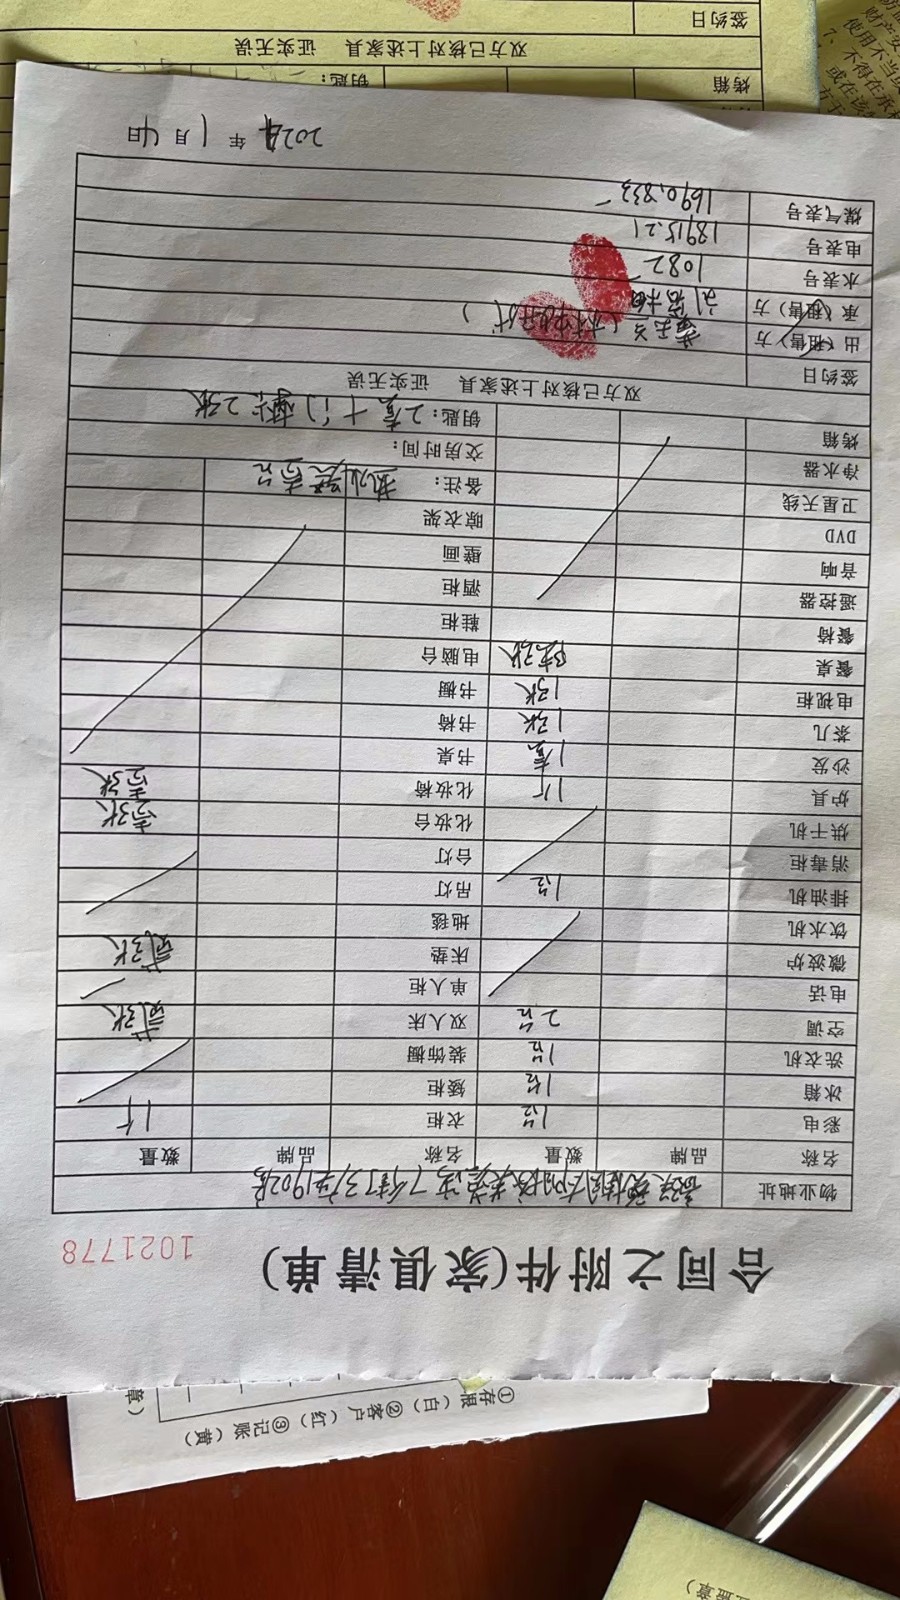 合同之附件(家俱清单)
1021778
物业地址
名称 品牌 数量 名称 品牌 数量
彩电 1台 衣柜 1个
冰箱 1台 矮柜
洗衣机 1台 装饰橱
空调 2台 双人床 贰张
电话 单人柜
微波炉 床垫 贰张
饮水机 地毯
排油机 1台 吊灯
消毒柜 台灯
烘干机 化妆台 壹张
炉具 1个 化妆椅 壹张
沙发 1套 书桌
茶几 1张 书椅
电视柜 1张 书橱
餐桌 电脑台
餐椅 鞋柜
遥控器 酒柜
音响 壁画
DVD 晾衣架
卫星天线 备注:
净水器 交房时间:
烤箱 钥匙: 2套+门禁卡2张
双方已核对上述家具 证实无误
签约日
出(租售)方
承(租售)方
水表号 1082
电表号 18915.21
煤气表号 1690.833
2024年1月4日
①存根(白)②客户(红)③记账(黄)
章)
盖章)
烤箱 钥匙:
双方已核对上述家具 证实无误
签约日
7、使用不当或
不得在承
或在该